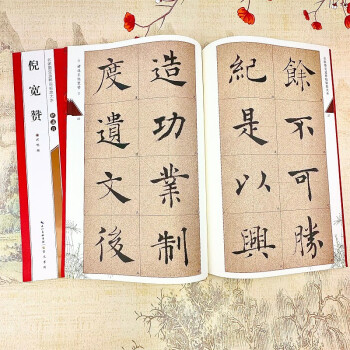 倪宽赞
餘不可勝
紀是以興
造功業制
度遺文後